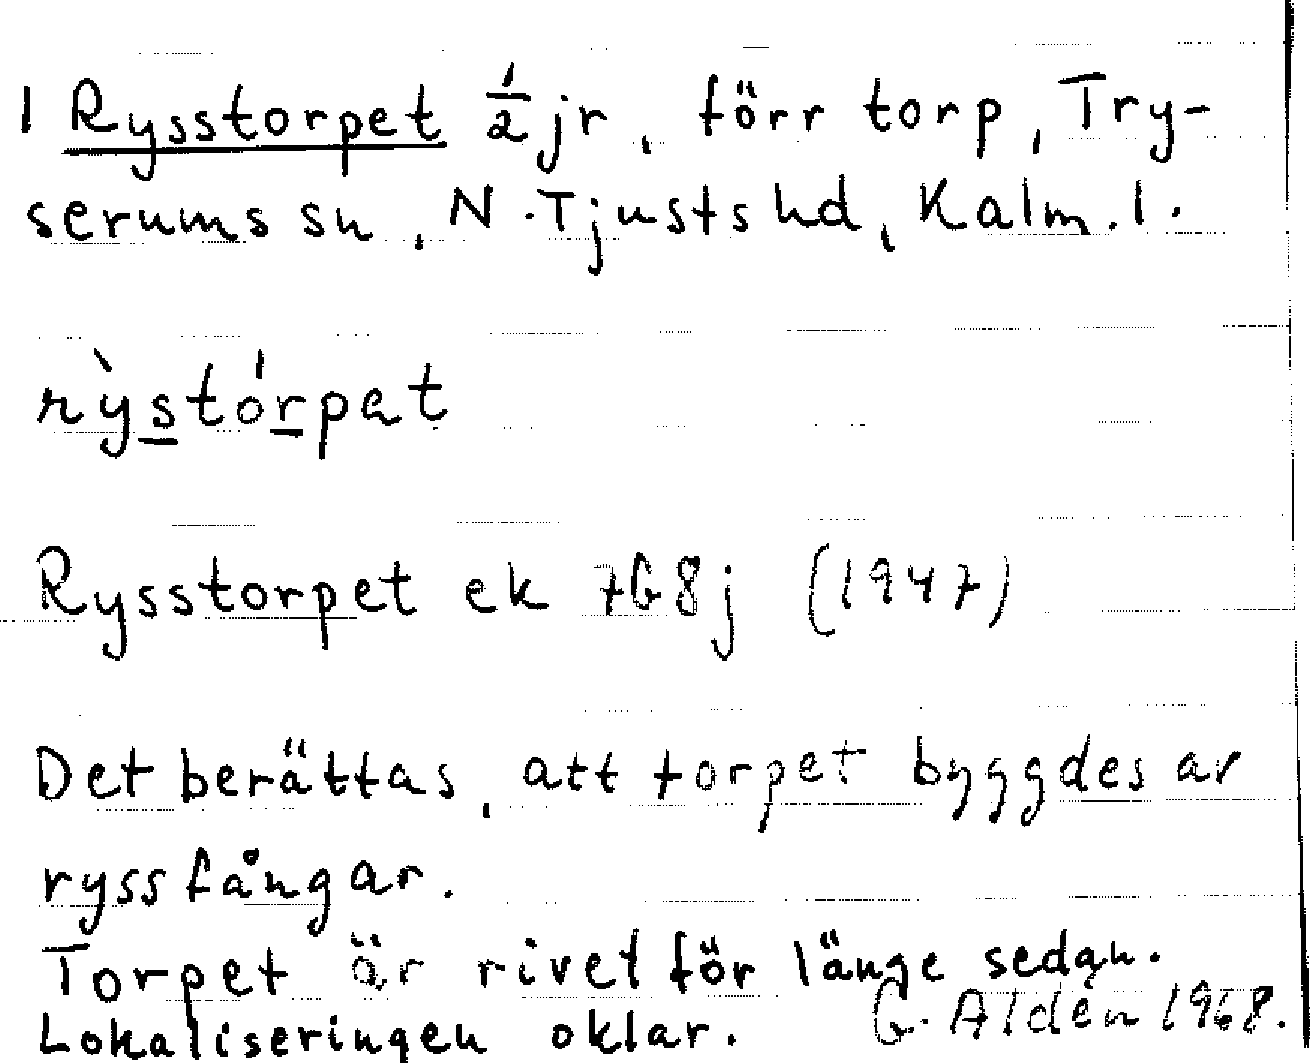 1 Rysstorpet ½ jr, förr torp, Try-
serums sn, N. Tjusts hd, Kalm. l.
rỳstórpat
Rysstorpet ek 7G8j (1947)
Det berättas, att torpet byggdes av
ryssfångar.
Torpet är rivet för länge sedan.
Lokaliseringen oklar. G. Aldén 1968.